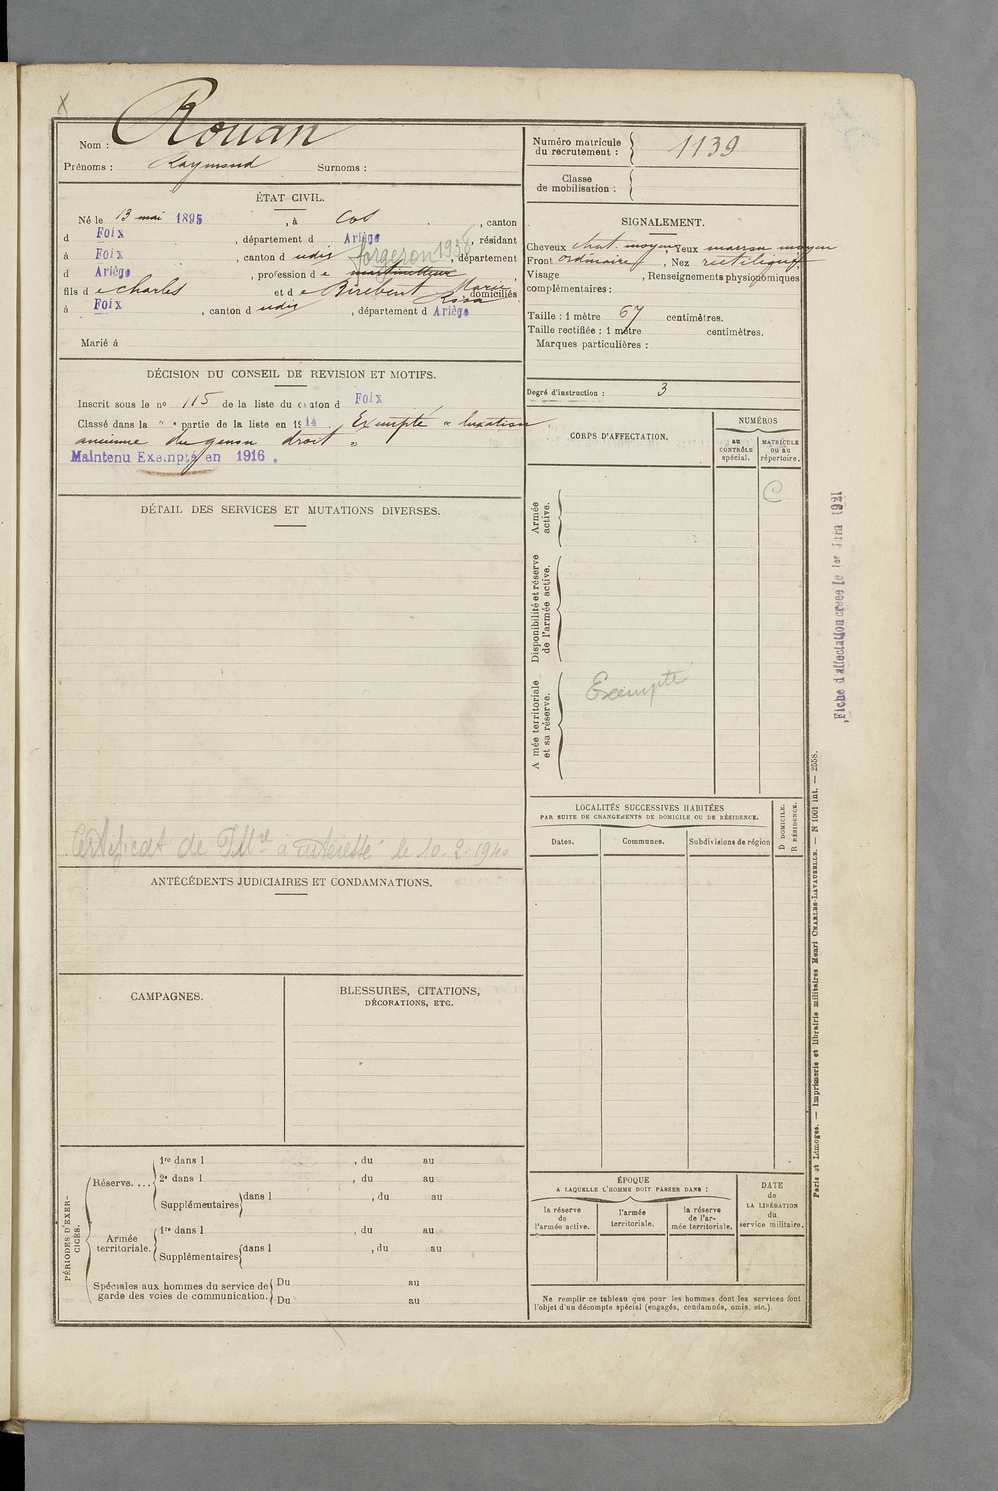 X
Nom : Rouan
Prénoms : Raymond Surnoms :
ÉTAT CIVIL.
Né le 13 mai 1895, à Cos, canton
d Foix, département d Ariège, résidant
à Foix, canton d udis forgeron 1938, département
d Ariège, profession d e martineteur
fils d e Charles et d e Birebent Marie Rosa, domiciliés
à Foix, canton d udis, département d Ariège
Marié à
DÉCISION DU CONSEIL DE REVISION ET MOTIFS.
Inscrit sous le no 115 de la liste du canton d Foix
Classé dans la " e partie de la liste en 1914. Exempté " luxation
ancienne du genou droit "
Maintenu Exempté en 1916.
DÉTAIL DES SERVICES ET MUTATIONS DIVERSES.
Certificat de à intéressé le 10.2.1940
ANTÉCÉDENTS JUDICIAIRES ET CONDAMNATIONS.
CAMPAGNES.
BLESSURES, CITATIONS,
DÉCORATIONS, ETC.
PÉRIODES D'EXER-
CICES.
Réserve. ...
1re dans l , du au
2e dans l , du au
Supplémentaires dans l , du au
Armée
territoriale.
1re dans l , du au
Supplémentaires dans l , du au
Spéciales aux hommes du service de
garde des voies de communication.
Du au
Du au
Numéro matricule
du recrutement : 1139
Classe
de mobilisation :
SIGNALEMENT.
Cheveux chat. moyen, Yeux marron moyen
Front ordinaire, Nez rectiligne
Visage , Renseignements physiognomiques
complémentaires :
Taille : 1 mètre 67 centimètres.
Taille rectifiée : 1 mètre centimètres.
Marques particulières :
Degré d'instruction : 3
CORPS D'AFFECTATION.
NUMÉROS
au
CONTRÔLE
spécial.
MATRICULE
ou au
répertoire.
C
Armée
active.
Disponibilité et réserve
de l'armée active.
A mée territoriale
et sa réserve.
Exempté
LOCALITÉS SUCCESSIVES HABITÉES
PAR SUITE DE CHANGEMENTS DE DOMICILE OU DE RÉSIDENCE.
D DOMICILE.
R RÉSIDENCE.
Dates. Communes. Subdivisions de région
ÉPOQUE
A LAQUELLE L'HOMME DOIT PASSER DANS :
la réserve
de
l'armée active.
l'armée
territoriale.
la réserve
de l'ar-
mée territoriale.
DATE
de
LA LIBÉRATION
du
service militaire.
Ne remplir ce tableau que pour les hommes dont les services font
l'objet d'un décompte spécial (engagés, condamnés, omis, etc.).
Fiche d'affectation créée le 1er Juin 1921
Paris et Limoges. — Imprimerie et librairie militaires Henri CHARLES-LAVAUZELLE. — N 1001 int. — 2558.